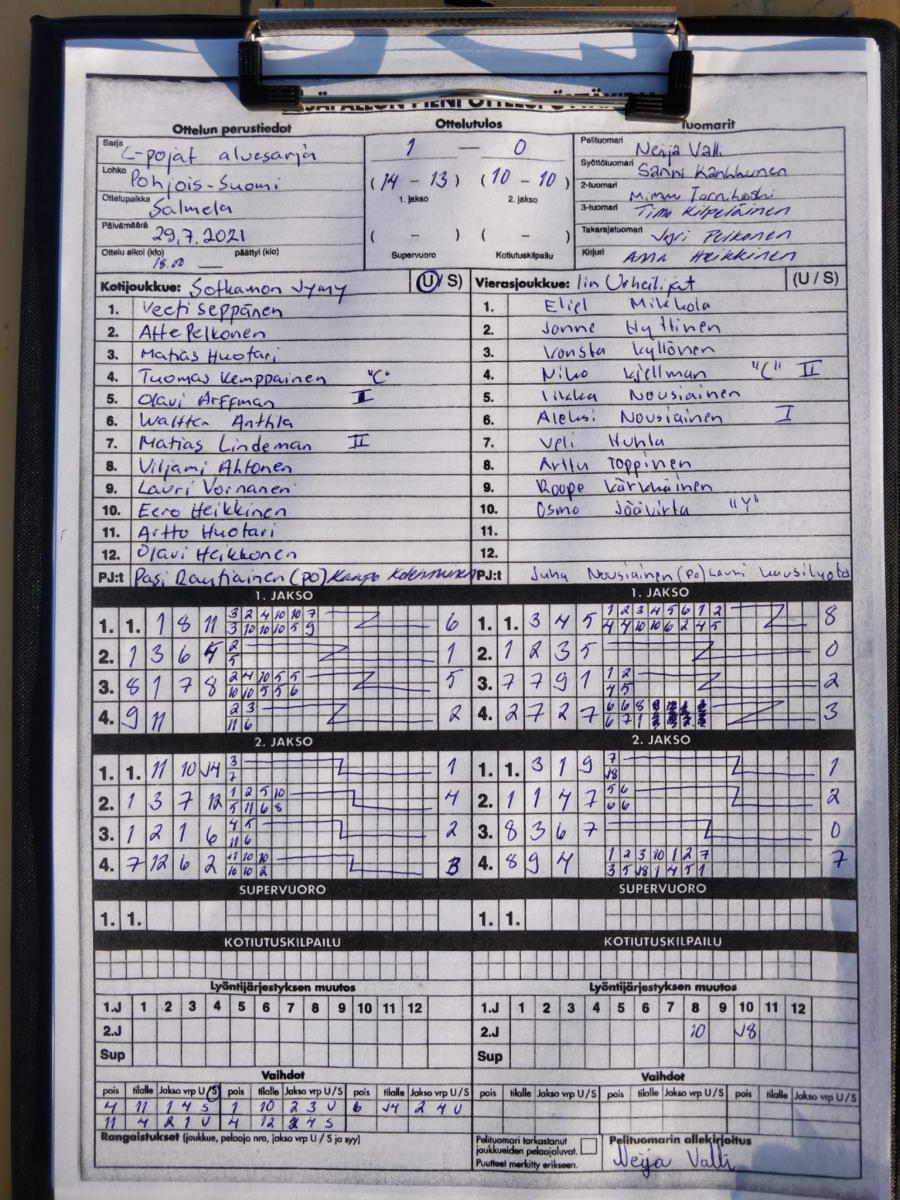 Ottelun perustiedot
Ottelutulos
Tuomarit
Sarja C-pojat aluesarja
Lohko Pohjois-Suomi
Ottelupaikka Salmela
Päivämäärä 29.7.2021
Ottelu alkoi (klo) 18.00 päättyi (klo)
1 — 0
(14 - 13) (10 - 10)
1. jakso 2. jakso
( - ) ( - )
Supervuoro Kotiutuskilpailu
Pelituomari Neija Valli
Syöttötuomari Sanni Karhunen
2-tuomari Mimmi
3-tuomari Timo Kilpeläinen
Takarajatuomari Jari Pelkonen
Kirjuri Anna Heikkinen
Kotijoukkue: Sotkamon Jymy (U/S)
1. Veeti Seppänen
2. Atte Pelkonen
3. Matias Huotari
4. Tuomas Kemppainen "C"
5. Olavi Arffman I
6. Waltteri Anthla
7. Matias Lindeman II
8. Viljami Ahtonen
9. Lauri Voinanen
10. Eero Heikkinen
11. Artto Huotari
12. Olavi Heikkonen
PJ:t Pasi Rautiainen (PO)
Vierasjoukkue: Iin Urheilijat (U/S)
1. Eliel Mikkola
2. Jonne Hyttinen
3. Konsta Kyllönen
4. Niko Kjellman "C" II
5. Iikka Nousiainen
6. Aleksi Nousiainen I
7. Veli Huhla
8. Arttu Toppinen
9. Roope Kärkkäinen
10. Osmo Jäävirta "Y"
11.
12.
PJ:t Juha Nousiainen (PO) Lauri
1. JAKSO
1. 1. 1 8 11 3 2 4 10 10 7 6
3 10 10 10 5 9
2. 1 3 6 4 2 1
5
3. 8 1 7 8 2 4 10 5 5 5
10 10 5 5 6
4. 9 11 2 3 2
11 6
1. JAKSO
1. 1. 3 4 5 1 2 3 4 5 6 1 2 8
4 4 10 10 6 2 4 5
2. 1 2 3 5 0
3. 7 7 9 1 1 2 2
4 5
4. 2 7 2 7 6 6 8 3
6 7 1
2. JAKSO
1. 1. 11 10 J4 3 1
7
2. 1 3 7 12 1 2 5 10 4
5 11 6 8
3. 1 2 1 6 4 5 2
11 6
4. 7 12 6 2 11 10 10 3
10 10 2
2. JAKSO
1. 1. 3 1 9 7 1
J8
2. 1 1 4 7 5 6 2
6 6
3. 8 3 6 7 0
4. 8 9 4 1 2 3 10 1 2 7 7
3 5 J8 1 4 5 1
SUPERVUORO
1. 1.
SUPERVUORO
1. 1.
KOTIUTUSKILPAILU
KOTIUTUSKILPAILU
Lyöntijärjestyksen muutos
1.J 1 2 3 4 5 6 7 8 9 10 11 12
2.J
Sup
Lyöntijärjestyksen muutos
1.J 1 2 3 4 5 6 7 8 9 10 11 12
2.J 10 J8
Sup
Vaihdot
pois tilalle Jakso vrp U/S pois tilalle Jakso vrp U/S pois tilalle Jakso vrp U/S
4 11 1 4 S 1 10 2 3 U 6 J4 2 4 U
11 4 2 1 U 4 12 2 4 S
Vaihdot
pois tilalle Jakso vrp U/S pois tilalle Jakso vrp U/S pois tilalle Jakso vrp U/S
Rangaistukset (joukkue, pelaaja nro, jakso vrp U / S ja syy)
Pelituomari tarkastanut
joukkueiden pelaajaluvat.
Puutteet merkitty erikseen.
Pelituomarin allekirjoitus
Neija Valli